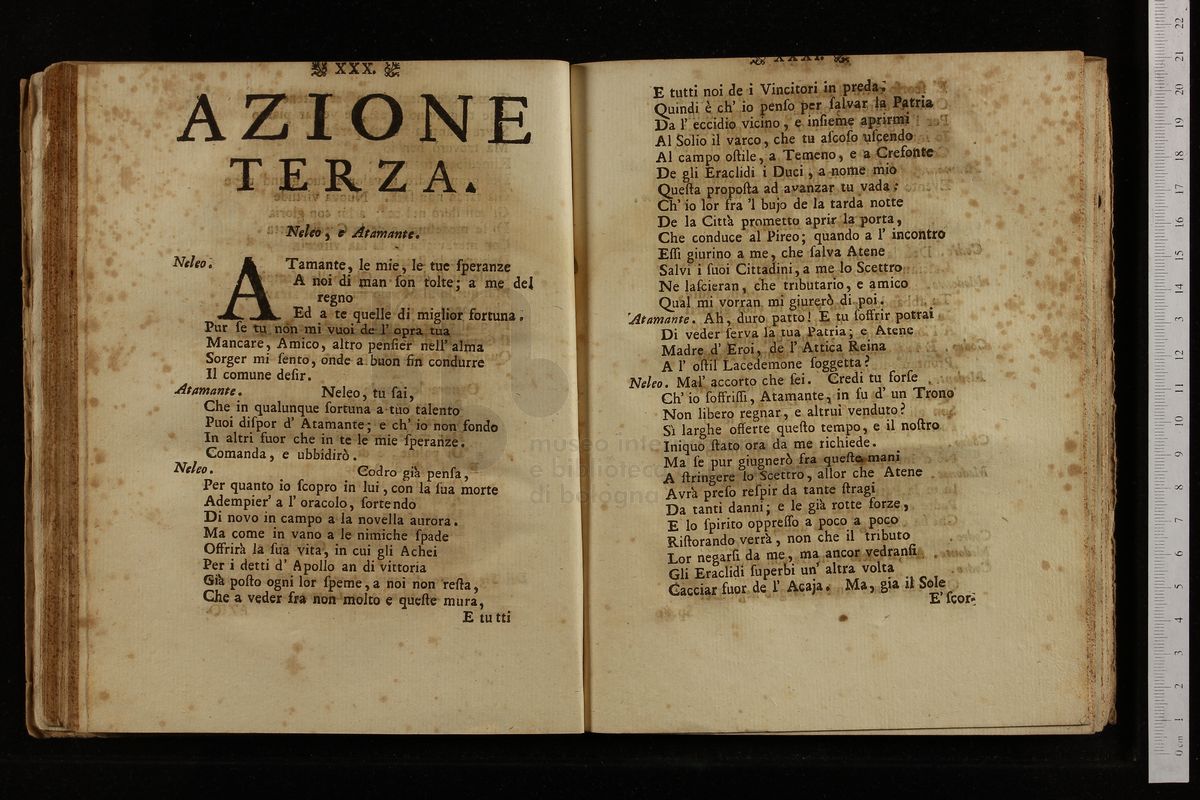 XXX.
AZIONE
TERZA.
Neleo, e Atamante.
Neleo. ATamante, le mie, le tue ſperanze
A noi di man ſon tolte; a me del
regno
Ed a te quelle di miglior fortuna.
Pur ſe tu non mi vuoi de l' opra tua
Mancare, Amico, altro penſier nell' alma
Sorger mi ſento, onde a buon fin condurre
Il comune deſir.
Atamante. Neleo, tu ſai,
Che in qualunque fortuna a tuo talento
Puoi diſpor d' Atamante; e ch' io non fondo
In altri fuor che in te le mie ſperanze.
Comanda, e ubbidirò.
Neleo. Codro già penſa,
Per quanto io ſcopro in lui, con la ſua morte
Adempier' a l' oracolo, ſortendo
Di novo in campo a la novella aurora.
Ma come in vano a le nimiche ſpade
Offrirà la ſua vita, in cui gli Achei
Per i detti d' Apollo an di vittoria
Già poſto ogni lor ſpeme, a noi non reſta,
Che a veder fra non molto e queſte mura,
E tutti
XXXI.
E tutti noi de i Vincitori in preda;
Quindi è ch' io penſo per ſalvar la Patria
Da l' eccidio vicino, e inſieme aprirmi
Al Solio il varco, che tu aſcoſo uſcendo
Al campo oſtile, a Temeno, e a Creſonte
De gli Eraclidi i Duci, a nome mio
Queſta propoſta ad avanzar tu vada:
Ch' io lor fra 'l bujo de la tarda notte
De la Città prometto aprir la porta,
Che conduce al Pireo; quando a l' incontro
Eſſi giurino a me, che ſalva Atene
Salvi i ſuoi Cittadini, a me lo Scettro
Ne laſcieran, che tributario, e amico
Qual mi vorran mi giurerò di poi.
Atamante. Ah, duro patto! E tu ſoffrir potrai
Di veder ſerva la tua Patria; e Atene
Madre d' Eroi, de l' Attica Reina
A l' oſtil Lacedemone ſoggetta?
Neleo. Mal' accorto che ſei. Credi tu forſe
Ch' io ſoffriſſi, Atamante, in ſu d' un Trono
Non libero regnar, e altrui venduto?
Sì larghe offerte queſto tempo, e il noſtro
Iniquo ſtato ora da me richiede.
Ma ſe pur giugnerò fra queſte mani
A ſtringere lo Scettro, allor che Atene
Avrà preſo reſpir da tante ſtragi
Da tanti danni; e le già rotte forze,
E lo ſpirito oppreſſo a poco a poco
Riſtorando verrà, non che il tributo
Lor negarſi da me, ma ancor vedranſi
Gli Eraclidi ſuperbi un' altra volta
Cacciar fuor de l' Acaja. Ma, gia il Sole
E' ſcor-
museo inte
e biblioteca
di bologna